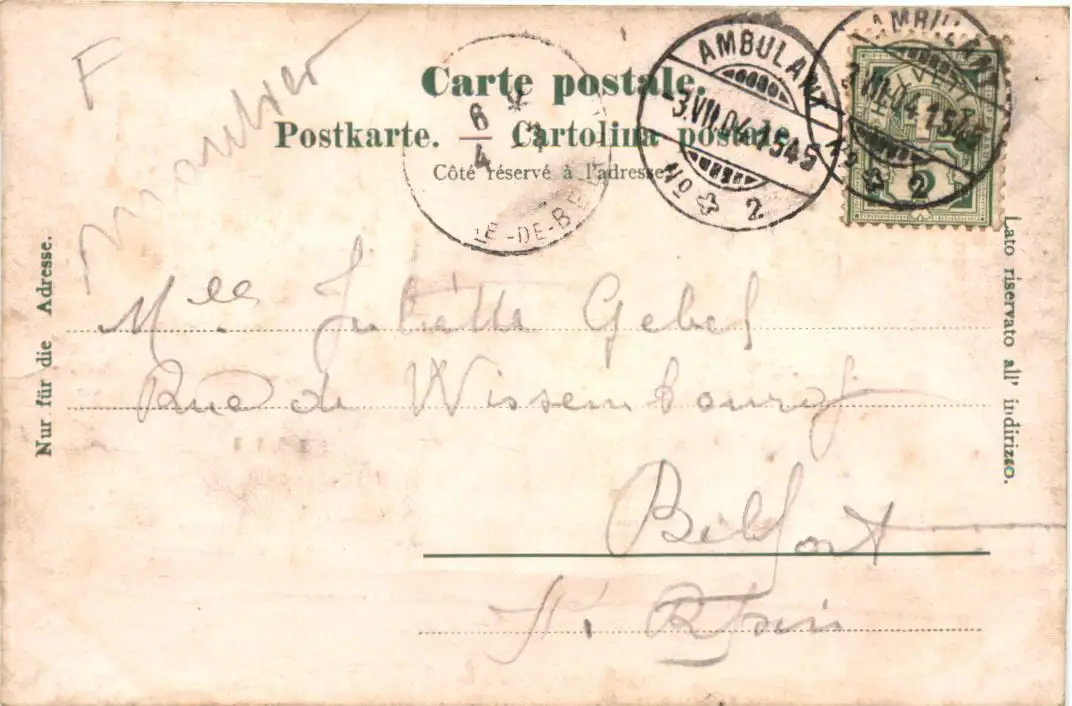 F
Carte postale.
Postkarte. Cartolina postale.
Côté réservé à l'adresse.
AMBULANT
3.VII.04.1545
No 2
AMBULANT
3.VII.04.1545
No 2
HELVETIA
6
4
-DE-BE
Nur für die Adresse.
Lato riservato all' indirizzo.
Mlle Juliette Gebel
Rue de Wissembourg
Belfort
Ht Rhin